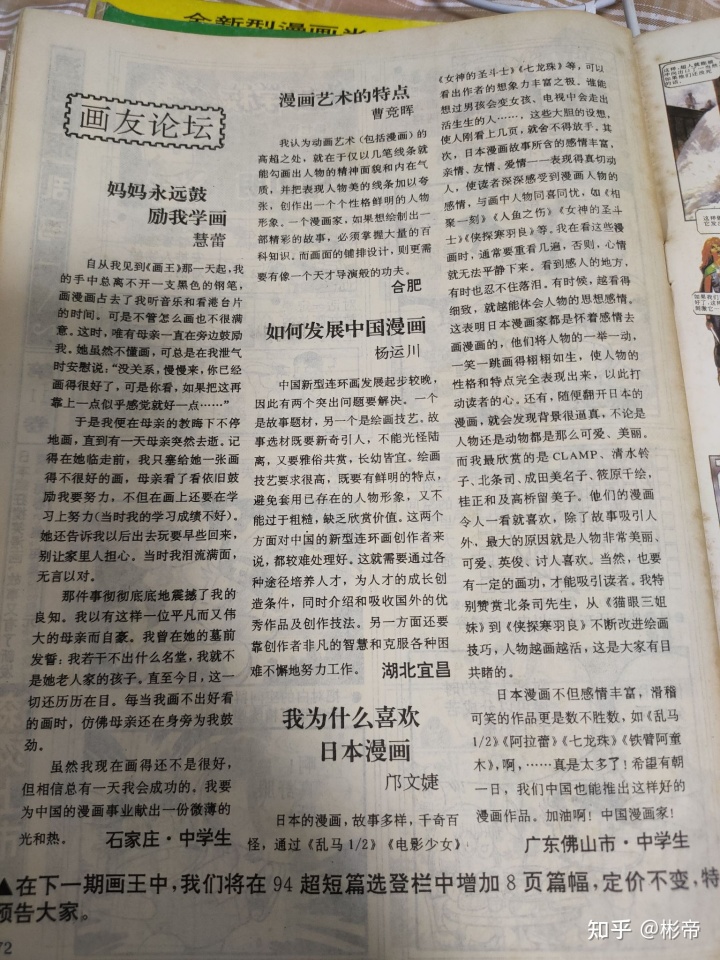 全新型漫画
画友论坛
妈妈永远鼓
励我学画
慧蕾
自从我见到《画王》那一天起,我
的手中总离不开一支黑色的钢笔,
画漫画占去了我听音乐和看港台片
的时间。可是不管怎么画也不很满
意。这时,唯有母亲一直在旁边鼓励
我。她虽然不懂画,可总是在我泄气
时安慰说:“没关系,慢慢来,你已经
画得很好了,可是你看,如果把这再
靠上一点似乎感觉就好一点……”
于是我便在母亲的教诲下不停
地画,直到有一天母亲突然去逝。记
得在她临走前,我只塞给她一张画
得不很好的画,母亲看了看依旧鼓
励我要努力,不但在画上还要在学
习上努力(当时我的学习成绩不好)。
她还告诉我以后出去玩要早些回来,
别让家里人担心。当时我泪流满面,
无言以对。
那件事彻彻底底地震撼了我的
良知。我以有这样一位平凡而又伟
大的母亲而自豪。我曾在她的墓前
发誓:我若干不出什么名堂,我就不
是她老人家的孩子。直至今日,这一
切还历历在目。每当我画不出好看
的画时,仿佛母亲还在身旁为我鼓
劲。
虽然我现在画得还不是很好,
但相信总有一天我会成功的。我要
为中国的漫画事业献出一份微薄的
光和热。 石家庄·中学生
漫画艺术的特点
曹竞晖
我认为动画艺术(包括漫画)的
高超之处,就在于仅以几笔线条就
能勾画出人物的精神面貌和内在气
质,并把表现人物美的线条加以夸
张,创作出一个个性格鲜明的人物
形象。一个漫画家,如果想绘制出一
部精彩的故事,必须掌握大量的百
科知识。而画面的铺排设计,则更需
要有像一个天才导演般的功夫。
合肥
如何发展中国漫画
杨运川
中国新型连环画发展起步较晚,
因此有两个突出问题要解决。一个
是故事题材,另一个是绘画技艺。故
事选材既要新奇引人,不能光怪陆
离,又要雅俗共赏,长幼皆宜。绘画
技艺要求很高,既要有鲜明的特点,
避免套用已存在的人物形象,又不
能过于粗糙,缺乏欣赏价值。这两个
方面对中国的新型连环画创作者来
说,都较难处理好。这就需要通过各
种途径培养人才,为人才的成长创
造条件,同时介绍和吸收国外的优
秀作品及创作技法。另一方面还要
靠创作者非凡的智慧和克服各种困
难不懈地努力工作。 湖北宜昌
我为什么喜欢
日本漫画
邝文婕
日本的漫画,故事多样,千奇百
怪,通过《乱马1/2》《电影少女》
《女神的圣斗士》《七龙珠》等,可以
看出作者的想象力丰富之极。谁能
想过男孩会变女孩、电视中会走出
活生生的人……,这些大胆的设想,
使人刚看上几页,就舍不得放手。其
次,日本漫画故事所含的感情丰富,
亲情、友情、爱情一一表现得真切动
人,使读者深深感受到漫画人物的
感情,与画中人物同喜同忧,如《相
聚一刻》《人鱼之伤》《女神的圣斗
士》《侠探寒羽良》等。我在看这些漫
画时,通常要重看几遍,否则,心情
就无法平静下来。看到感人的地方,
有时也忍不住落泪。有时候,越看得
细致,就越能体会人物的思想感情。
这表明日本漫画家都是怀着感情去
画漫画的,他们将人物的一举一动,
一笑一跳画得栩栩如生,使人物的
性格和特点完全表现出来,以此打
动读者的心。还有,随便翻开日本的
漫画,就会发现背景很逼真,不论是
人物还是动物都是那么可爱、美丽。
而我最欣赏的是CLAMP、清水铃
子、北条司、成田美名子、筱原千绘,
桂正和及高桥留美子。他们的漫画
令人一看就喜欢,除了故事吸引人
外,最大的原因就是人物非常美丽、
可爱、英俊、讨人喜欢。当然,也要
有一定的画功,才能吸引读者。我特
别赞赏北条司先生,从《猫眼三姐
妹》到《侠探寒羽良》不断改进绘画
技巧,人物越画越活,这是大家有目
共睹的。
日本漫画不但感情丰富,滑稽
可笑的作品更是数不胜数,如《乱马
1/2》《阿拉蕾》《七龙珠》《铁臂阿童
木》,啊,……真是太多了!希望有朝
一日,我们中国也能推出这样好的
漫画作品。加油啊!中国漫画家!
广东佛山市·中学生
▲在下一期画王中,我们将在94超短篇选登栏中增加8页篇幅,定价不变,特
预告大家。
72
知乎 @彬帝